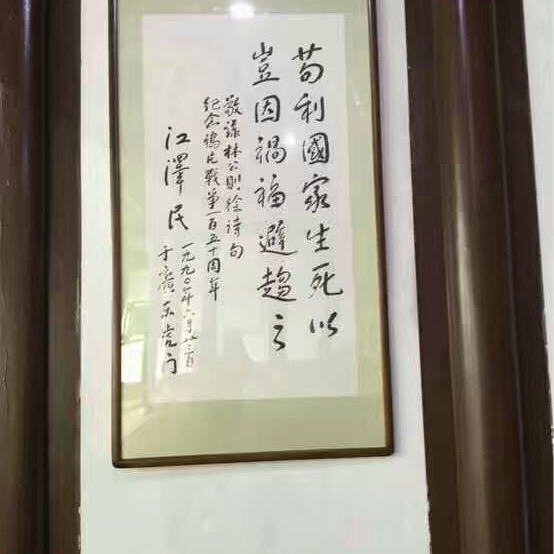 苟利國家生死以
豈因禍福避趨之
敬錄林公則徐诗句
纪念鴉片戰争一百五十周年
江澤民
一九九〇年六月廿三日
于廣东虎门